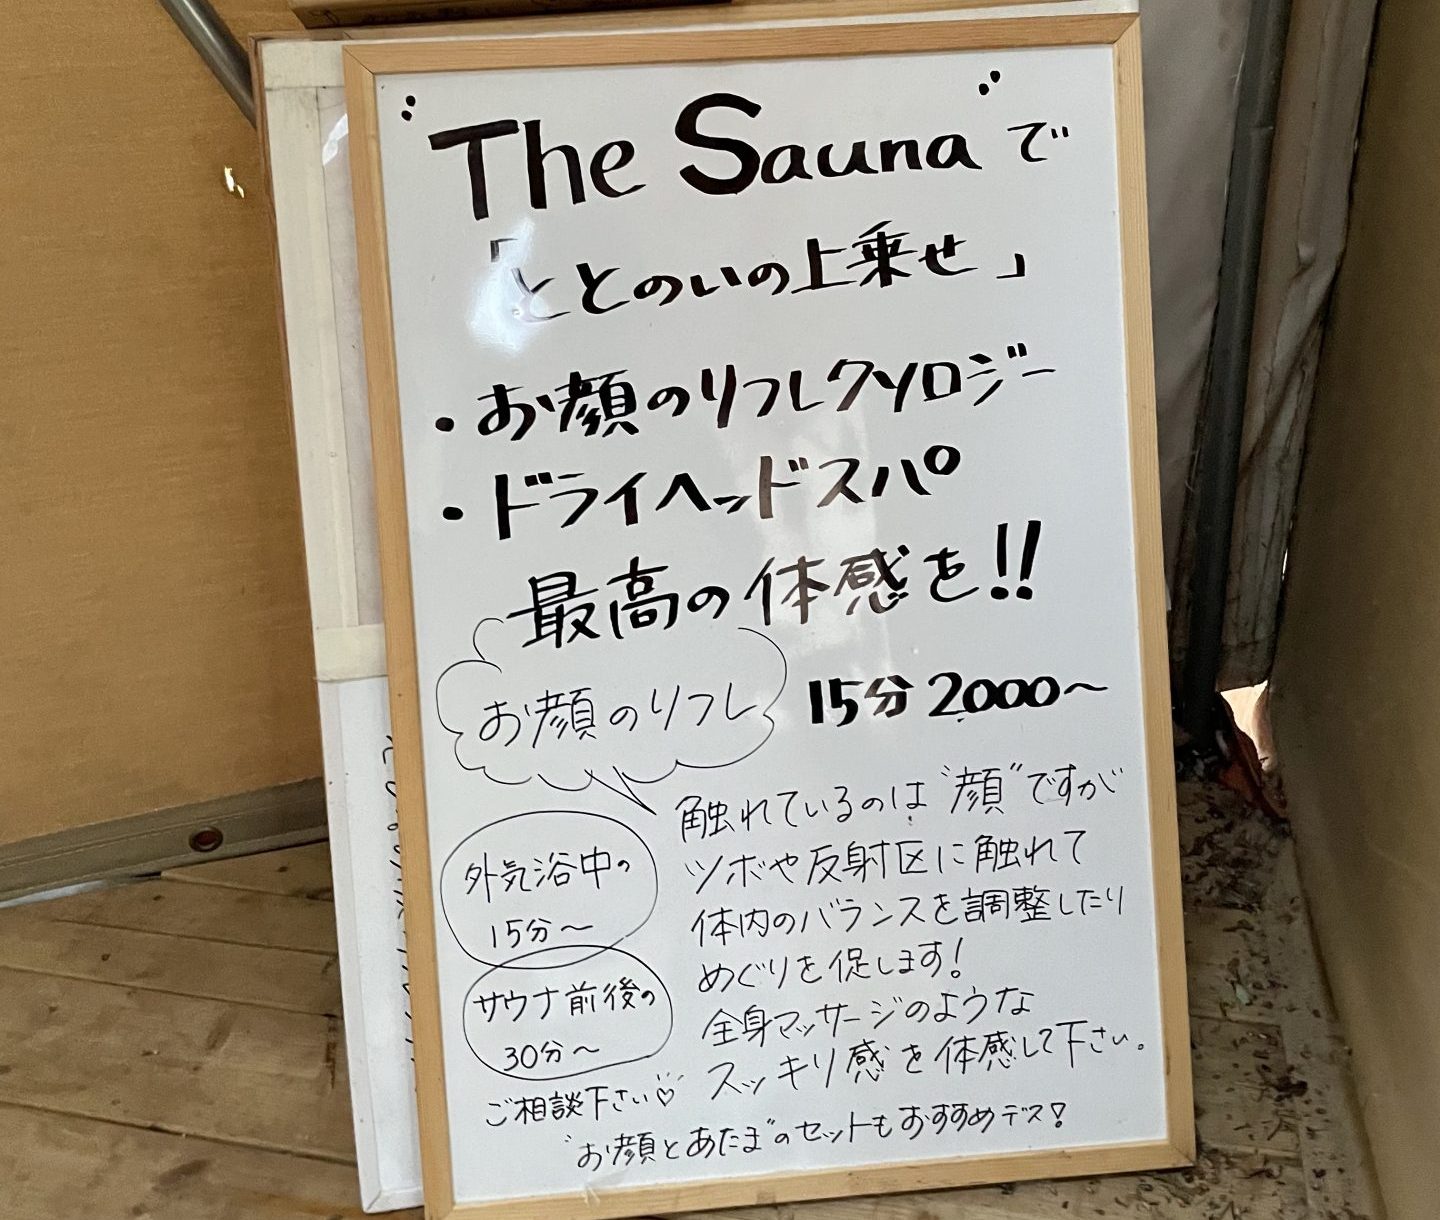 "The Sauna"で
「ととのいの上乗せ」
・お顔のリフレクソロジー
・ドライヘッドスパ
最高の体感を!!
お顔のリフレ
15分 2000〜
触れているのは"顔"ですが
ツボや反射区に触れて
体内のバランスを調整したり
めぐりを促します!
全身マッサージのような
スッキリ感を体感して下さい。
外気浴中の
15分〜
サウナ前後の
30分〜
ご相談下さい♡
"お顔とあたま"のセットもおすすめデス!